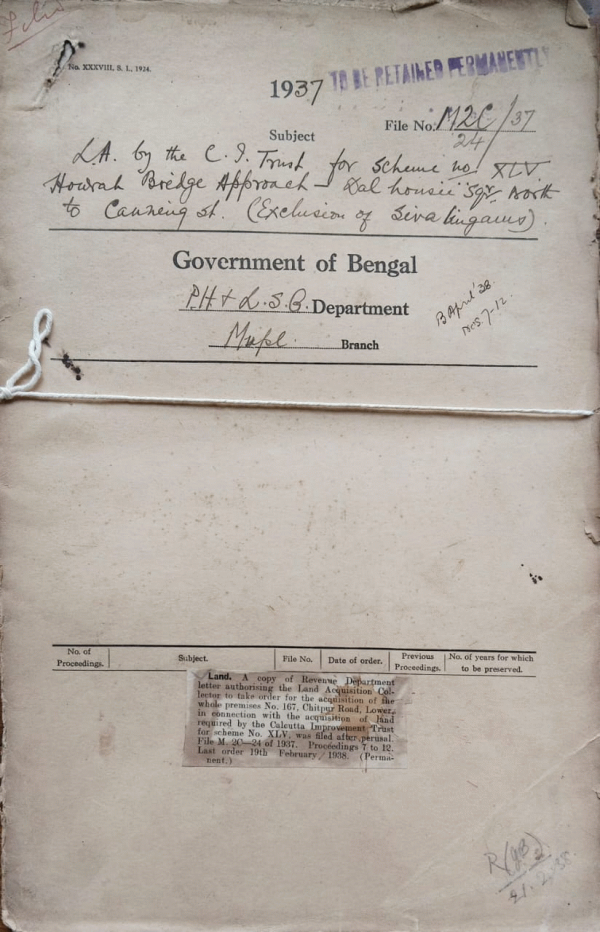 No. XXXVIII, S. L., 1924.
TO BE RETAINED PERMANENTLY
1937
File No. M2C/37
24
Subject
L.A. by the C. I. Trust for scheme no XLV
Howrah Bridge Approach – Dalhousie Sqr. North
to Canning st. (Exclusion of Sivalingams).
Government of Bengal
P.H & L.S.G. Department
Mupl. Branch
B April '38
Nos. 7-12.
No. of Proceedings. Subject. File No. Date of order. Previous Proceedings. No. of years for which to be preserved.
Land. A copy of Revenue Department
letter authorising the Land Acquisition Col-
lector to take order for the acquisition of the
whole premises No. 167, Chitpur Road, Lower,
in connection with the acquisition of land
required by the Calcutta Improvement Trust
for scheme No. XLV, was filed after perusal.
File M. 2C—24 of 1937. Proceedings 7 to 12.
Last order 19th February, 1938. (Perma-
nent.)